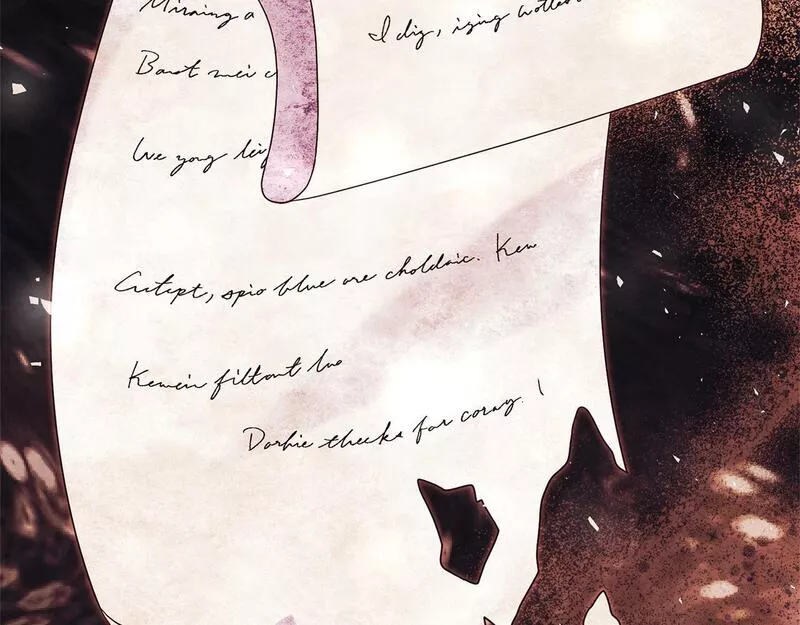 Mirning a
I dig, izing wotless
Bowt mei c
We yong lei
Cutept, spio blue ore choldaic. Kew
Kewein filtont luo
Dorhie thecks for corny. !